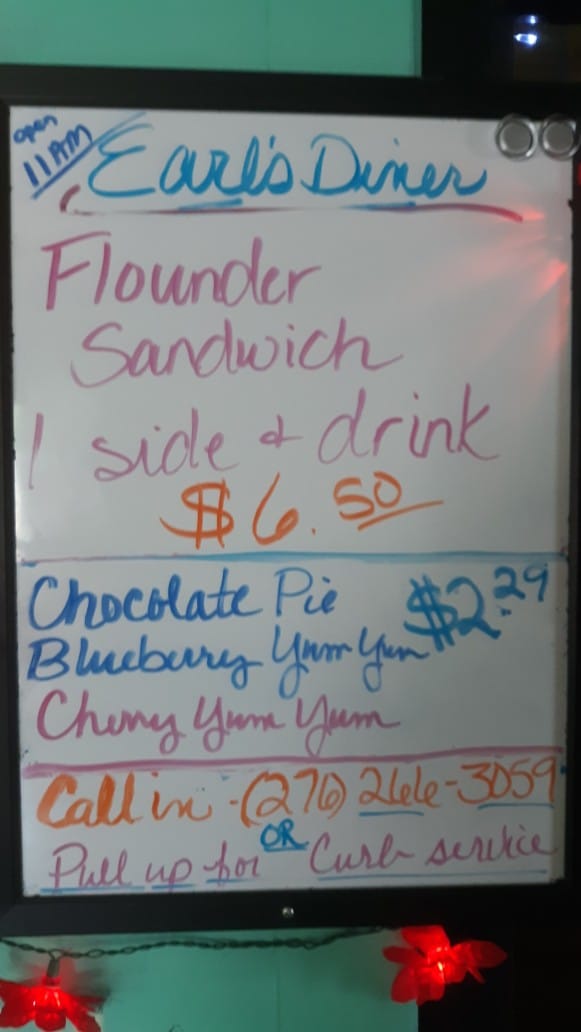 open
11 AM
Earl's Diner
Flounder
Sandwich
1 side & drink
$6.50
Chocolate Pie $2.29
Blueberry Yum Yum
Cherry Yum Yum
Call in - (276) 266-3059
OR
Pull up for Curb service